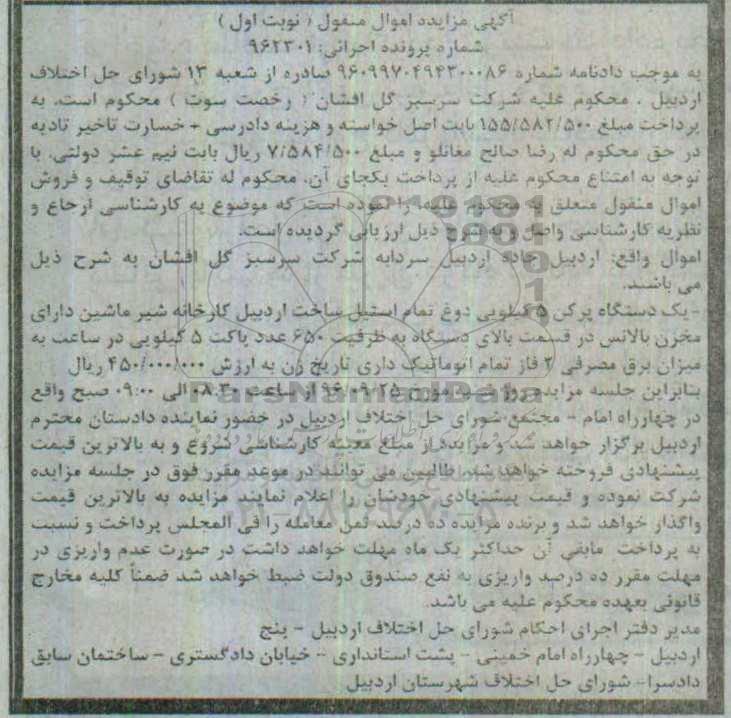 آگهی مزایده اموال منقول ( نوبت اول )
شماره پرونده اجرائی: ۹۶۲۳۰۱
به موجب دادنامه شماره ۹۶۰۹۹۷۰۴۹۴۳۰۰۰۸۶ صادره از شعبه ۱۳ شورای حل اختلاف
اردبیل ، محکوم علیه شرکت سرسبز گل افشان ( رخصت سوت ) محکوم است، به
پرداخت مبلغ ۱۵۵/۵۸۲/۵۰۰ بابت اصل خواسته و هزینه دادرسی + خسارت تاخیر تادیه
در حق محکوم له رضا صالح مغانلو و مبلغ ۷/۵۸۴/۵۰۰ ریال بابت نیم عشر دولتی. با
توجه به امتناع محکوم علیه از پرداخت یکجای آن، محکوم له تقاضای توقیف و فروش
اموال منقول متعلق به محکوم علیه را نموده است که موضوع به کارشناسی ارجاع و
نظریه کارشناسی واصل و به شرح ذیل ارزیابی گردیده است.
اموال واقع: اردبیل جاده اردبیل سردابه شرکت سرسبز گل افشان به شرح ذیل
می باشد.
-یک دستگاه پرکن ۵ کیلویی دوغ تمام استیل ساخت اردبیل کارخانه شیر ماشین دارای
مخزن بالانس در قسمت بالای دستگاه به ظرفیت ۶۵۰ عدد پاکت ۵ کیلویی در ساعت به
میزان برق مصرفی ۲ فاز تمام اتوماتیک داری تاریخ زن به ارزش ۴۵۰/۰۰۰/۰۰۰ ریال
بنابراین جلسه مزایده روز شنبه مورخ ۹۶/۰۹/۲۵ از ساعت ۰۸:۳۰ الی ۰۹:۰۰ صبح واقع
در چهارراه امام - مجتمع شورای حل اختلاف اردبیل در حضور نماینده دادستان محترم
اردبیل برگزار خواهد شد و مزایده از مبلغ معینه کارشناسی شروع و به بالاترین قیمت
پیشنهادی فروخته خواهد شد. طالبین می توانند در موعد مقرر فوق در جلسه مزایده
شرکت نموده و قیمت پیشنهادی خودشان را اعلام نمایند مزایده به بالاترین قیمت
واگذار خواهد شد و برنده مزایده ده درصد ثمن معامله را فی المجلس پرداخت و نسبت
به پرداخت مابقی آن حداکثر یک ماه مهلت خواهد داشت در صورت عدم واریزی در
مهلت مقرر ده درصد واریزی به نفع صندوق دولت ضبط خواهد شد ضمناً کلیه مخارج
قانونی بعهده محکوم علیه می باشد.
مدیر دفتر اجرای احکام شورای حل اختلاف اردبیل - پنج
اردبیل - چهارراه امام خمینی - پشت استانداری - خیابان دادگستری - ساختمان سابق
دادسرا- شورای حل اختلاف شهرستان اردبیل
ParsNamadData
۰۲۱-۸۸۳۴۹۶۷۰-۵